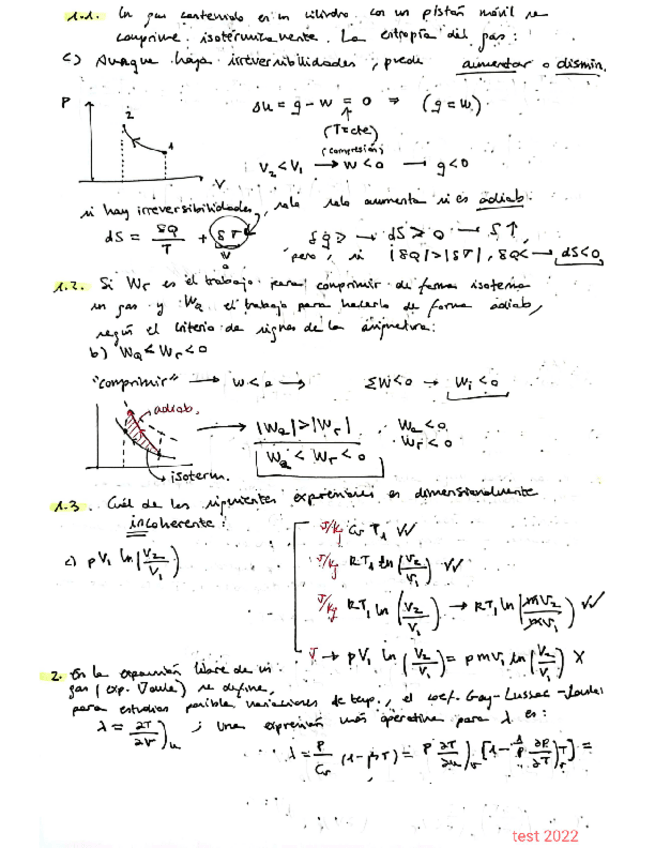 1.1. Un gas contenido en un cilindro con un pistón móvil se
comprime isotérmicamente. La entropía del gas:
c) Aunque haya irreversibilidades, puede aumentar o dismin.
P
2
1
V
Δu = q - w = 0 ⇒ (q = w)
(T=cte)
(compresión)
V₂ < V₁ → w < 0 → q < 0
si hay irreversibilidades, solo aumenta si es adiab.
dS = δQ/T + δσ
0
dS > 0 → S↑
pero, si |δQ| > |δσ|, δQ< → dS<0
1.2. Si Wr es el trabajo para comprimir de forma isoterma
un gas y Wa el trabajo para hacerlo de forma adiab,
según el criterio de signos de la asignatura:
b) Wa < Wr < 0
"comprimir" → w < 0 → ΣW<0 → Wi < 0
adiab.
isoterm.
|Wa| > |Wr|
Wa < 0
Wr < 0
Wa < Wr < 0
1.3. Cuál de las siguientes expresiones es dimensionalmente
incoherente:
c) pV₁ ln(V₂/V₁)
J/kg Cv T₁ √√
J/kg RT₁ ln(V₂/V₁) √√
J/kg RT₁ ln(v₂/v₁) → RT₁ ln(mv₂/mv₁) √√
J → pV₁ ln(V₂/V₁) = pmv₁ ln(V₂/V₁) X
2. En la expansión libre de un
gas (exp. Joule) se define,
para estudiar posibles variaciones de temp., el coef. Gay-Lussac-Joule:
λ = ∂T/∂v)u ; Una expresión más operativa para λ es:
λ = P/Cv (1-βT) = P ∂T/∂u)v [1 - 1/P ∂P/∂T)v T] =
test 2022